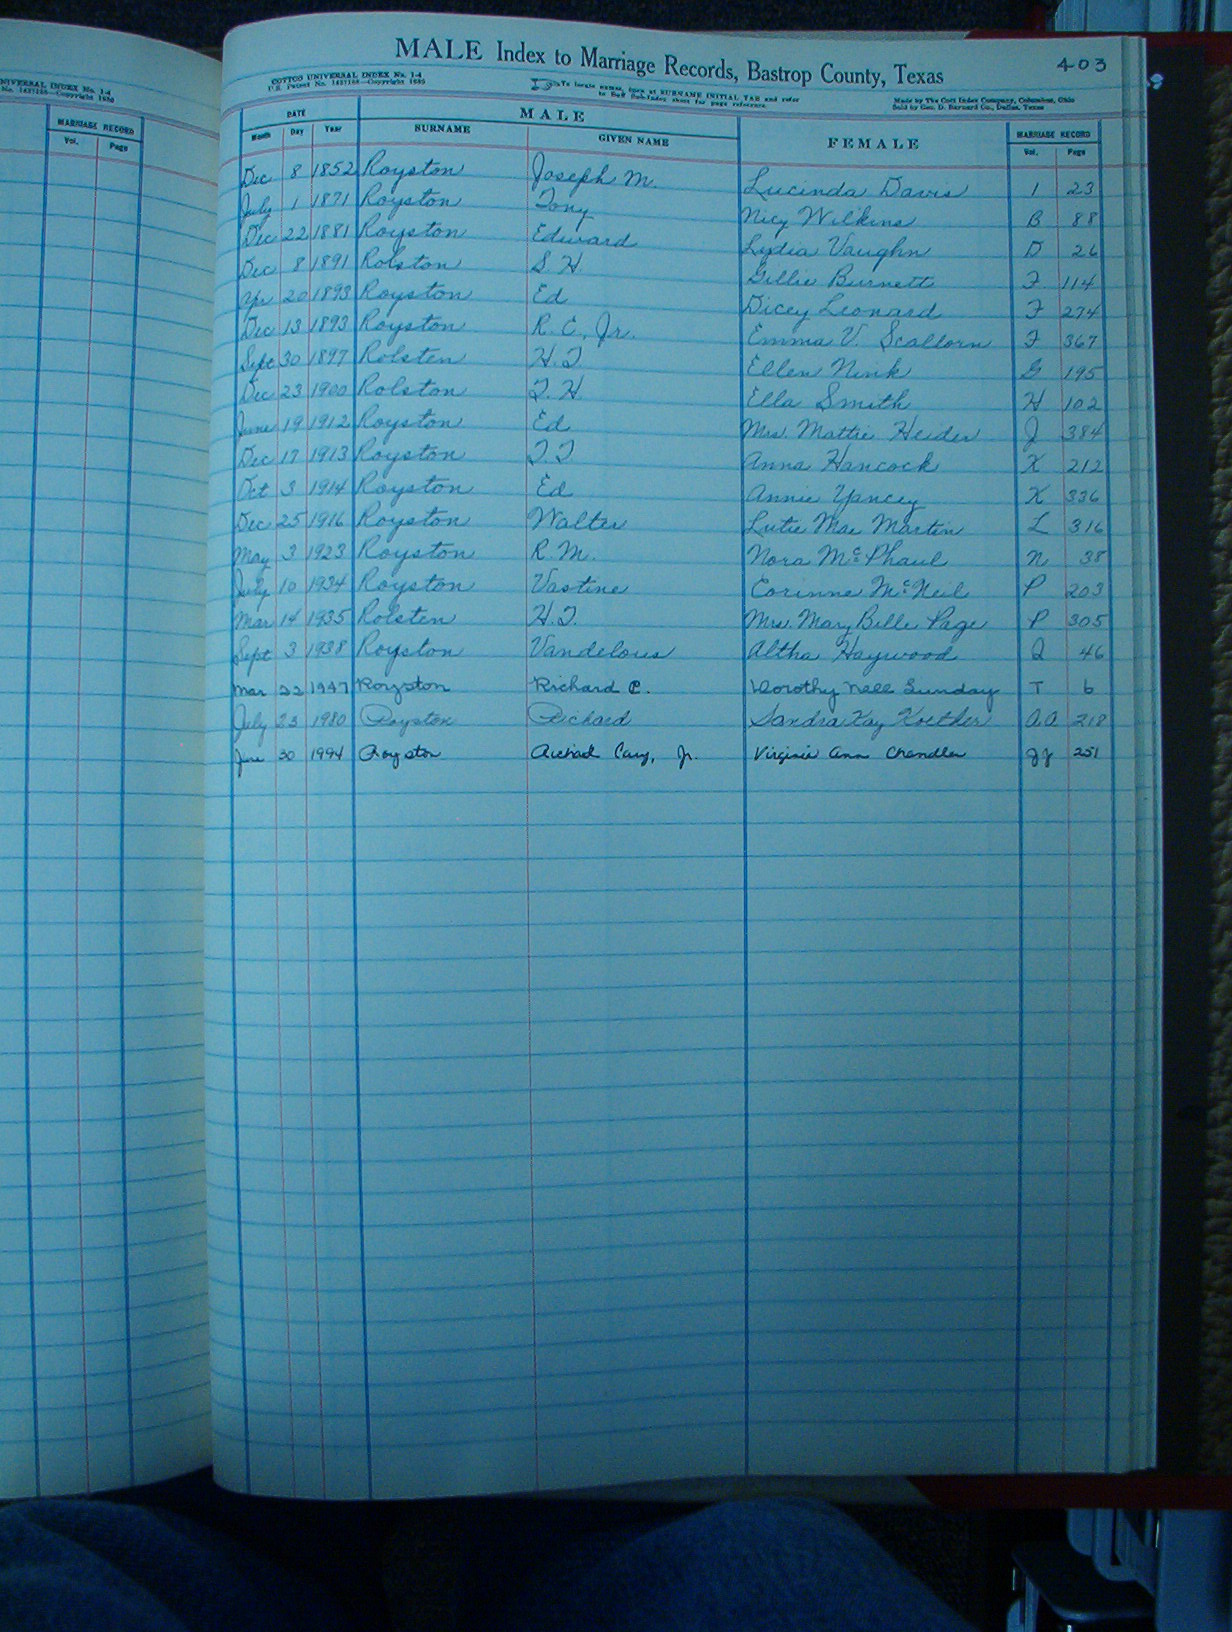 NIVERSAL INDEX No. 1-4
No. 1427128—Copyright 1930
MARRIAGE RECORD
Vol. Page
403
MALE Index to Marriage Records, Bastrop County, Texas
COTTCO UNIVERSAL INDEX No. 1-4
U.S. Patent No. 1427128—Copyright 1930
To locate names, open at SURNAME INITIAL TAB and refer
to Sub-Index sheet for page reference.
Made by The Cott Index Company, Columbus, Ohio
Sold by Geo. D. Barnard Co., Dallas, Texas
DATE MALE FEMALE MARRIAGE RECORD
Month Day Year SURNAME GIVEN NAME Vol. Page
Dec 8 1852 Royston Joseph M. Lucinda Davis 1 23
July 1 1871 Royston Tony Nicy Wilkins B 88
Dec 22 1881 Royston Edward Lydia Vaughn D 26
Dec 8 1891 Rolston S. H. Gillie Burnett F 114
Apr 20 1893 Royston Ed Dicey Leonard F 274
Dec 13 1893 Royston R. C. Jr. Emma V. Scallorn F 367
Sept 30 1897 Rolsten H. T. Ellen Nink G 195
Dec 23 1900 Rolston T. H. Ella Smith H 102
June 19 1912 Royston Ed Mrs. Mattie Heider J 384
Dec 17 1913 Royston T. T. Anna Hancock K 212
Oct 3 1914 Royston Ed Annie Yancey K 336
Dec 25 1916 Royston Walter Lutie Mae Martin L 316
May 3 1923 Royston R. M. Nora McPhaul N 38
July 10 1934 Royston Vastine Corinne McNeil P 203
Mar 14 1935 Rolsten H. T. Mrs. Mary Belle Page P 305
Sept 3 1938 Royston Vandelous Altha Haywood Q 46
Mar 22 1947 Royston Richard C. Dorothy Nell Sunday T 6
July 23 1980 Royston Richard Sandra Kay Koether A.A 218
June 30 1994 Royston Richard Cary, Jr. Virginia Ann Chandler JJ 251